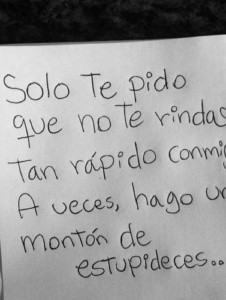 Solo Te pido
que no Te rindas
Tan rápido conmig
A veces, hago un
montón de
estupideces..